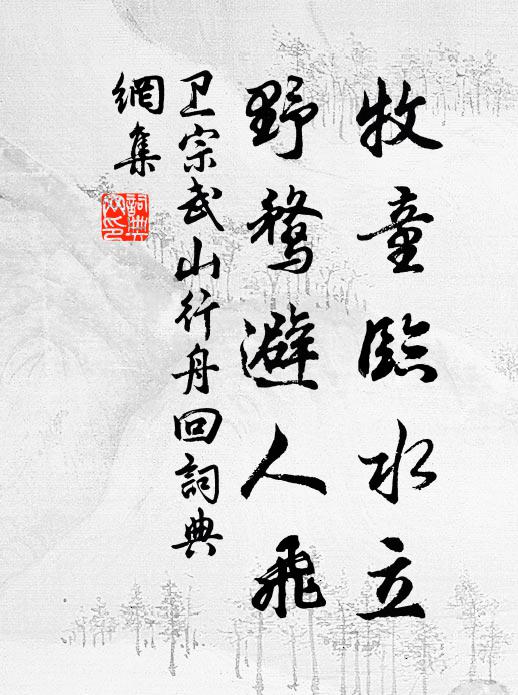 牧童臨水立
野鶩避人飛
卫宗武山行舟回詞典
網集
詞典網印